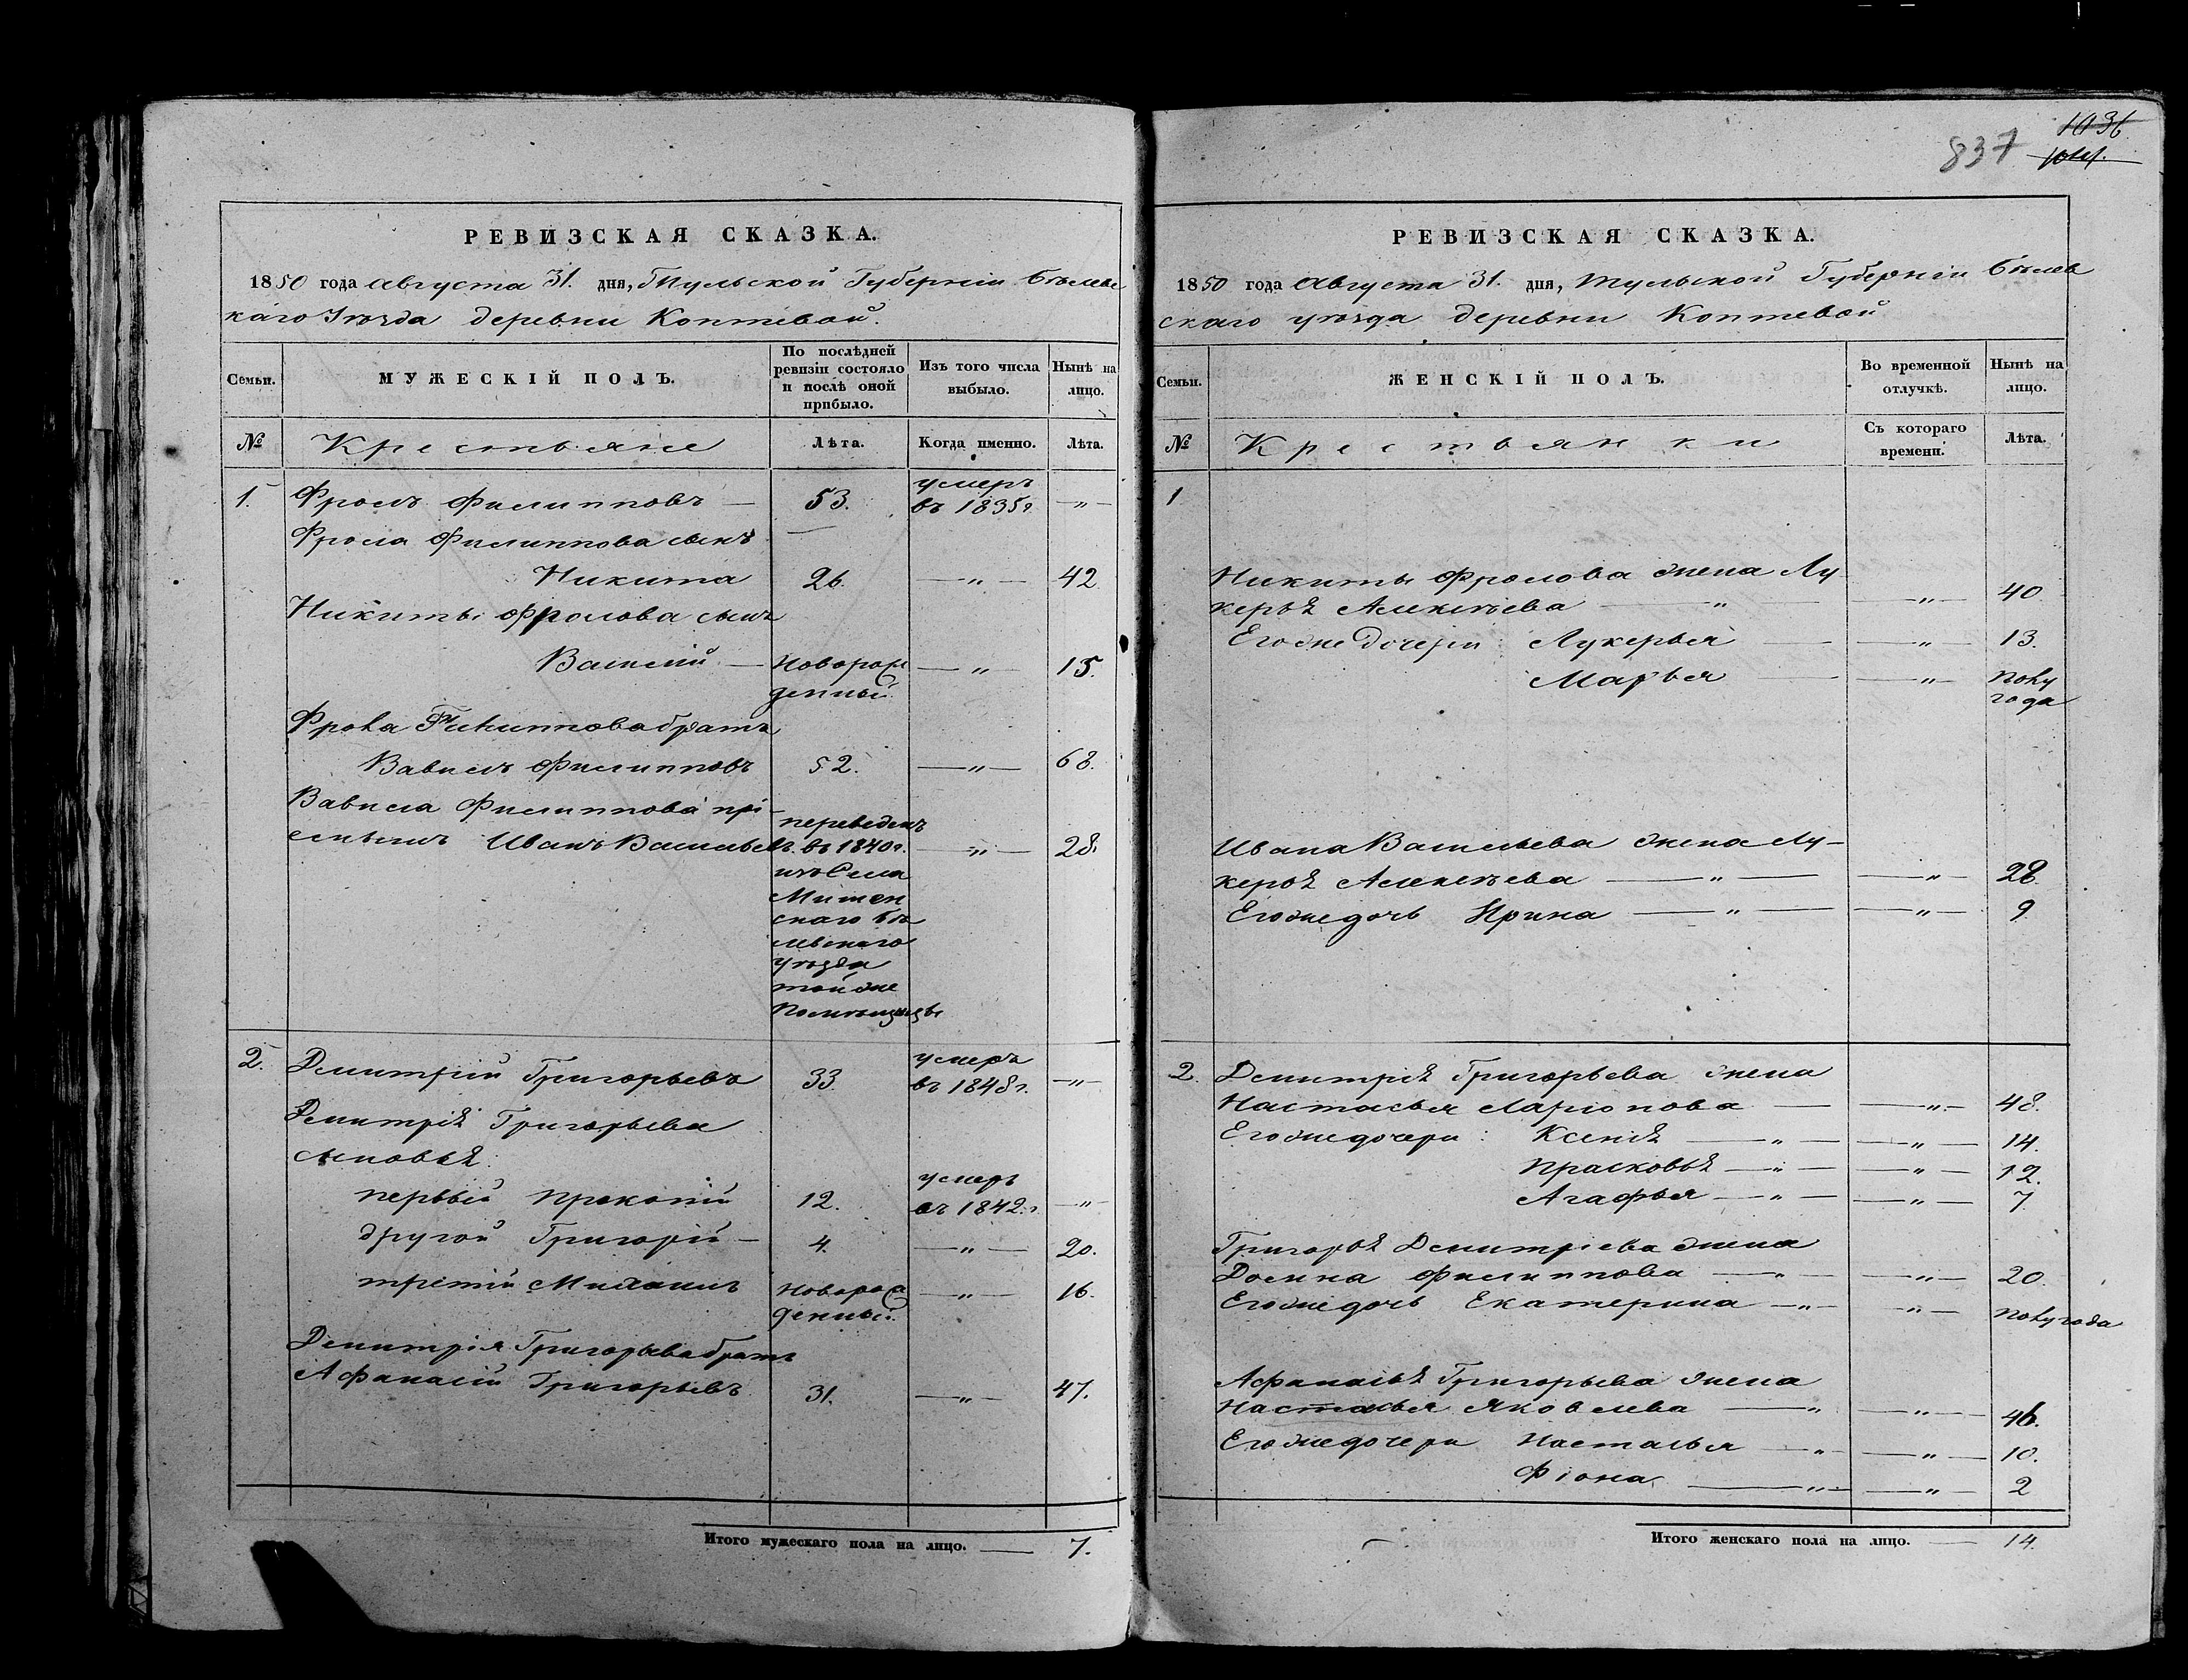 837 1036
РЕВИЗСКАЯ СКАЗКА.
1850 года Августа 31. дня, Тульской Губернiи Бѣлевс
каго Уѣзда деревни Коптевой.
Семьи.
МУЖЕСКІЙ ПОЛЪ.
По послѣдней ревизіи состояло и послѣ оной прибыло.
Изъ того числа выбыло.
Нынѣ на лицо.
№ Крестьяне Лѣта. Когда именно. Лѣта.
1. Фролъ Филипповъ — 53. умеръ въ 1835г. —„—
Фрола Филиппова сынъ —
Никита 26. —„— 42
Никиты Фролова сынъ
Василій — новорож
денный —„— 15.
Фрола Филиппова братъ
Вавилъ Филипповъ 52. —„— 68.
Вавила Филиппова прі-
емышъ Иванъ Васильевъ —„— 28.
переведенъ
въ 1840г.
изъ Села
Митен
скаго Бѣ
левскаго
Уѣзда
той же
Помѣщицы
2. Дмитрій Григорьевъ 33. умеръ въ 1848г. —„—
Дмитрія Григорьева
сыновья:
первый Прокофій 12. умеръ въ 1842.г. —„—
другой Григорій — 4. —„— 20.
третій Михаилъ новорож
денный. —„— 16.
Дмитрія Григорьева братъ
Афанасій Григорьевъ 31. —„— 47.
Итого мужескаго пола на лицо. — 7.
РЕВИЗСКАЯ СКАЗКА.
1850 года Августа 31. дня, Тульской Губерніи Бѣлев
скаго уѣзда деревни Коптевой
Семьи.
ЖЕНСКІЙ ПОЛЪ.
Во временной отлучкѣ.
Нынѣ на лицо.
№ Крестьянки Съ котораго времени. Лѣта.
1
Никиты Фролова жена Лу
керья Алексѣева —„— —„— 40
Его же дочери: Лукерья — —„— 13.
Марья — —„— полу
года
Ивана Васильева жена Лу-
керья Алексѣева —„— —„— 28.
Его же дочь Ирина —„— —„— 9
2. Дмитрія Григорьева жена
Настасья Ларіонова — —„— 48.
Его же дочери: Ксенія —„— —„— 14.
Прасковья —„— —„— 12.
Агафья —„— —„— 7.
Григорья Дмитріева жена
Домна Филиппова —„— —„— 20.
Его же дочь Екатерина —„— —„— полугода
Афанасья Григорьева жена
Настасья Яковлева —„ —„— 46.
Его же дочери Настасья —„ —„— 10.
Фіона —„— —„— 2
Итого женскаго пола на лицо. — 14.